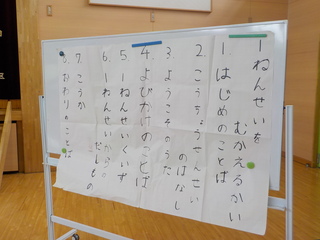 １ねんせいを
むかえるかい
1. はじめのことば
2. こうちょうせんせい
のはなし
3. ようこそのうた
4. よびかけのことば
5. １ねんせいくいず
6. １ねんせいから
だしもの
7. こうか
8. おわりのことば